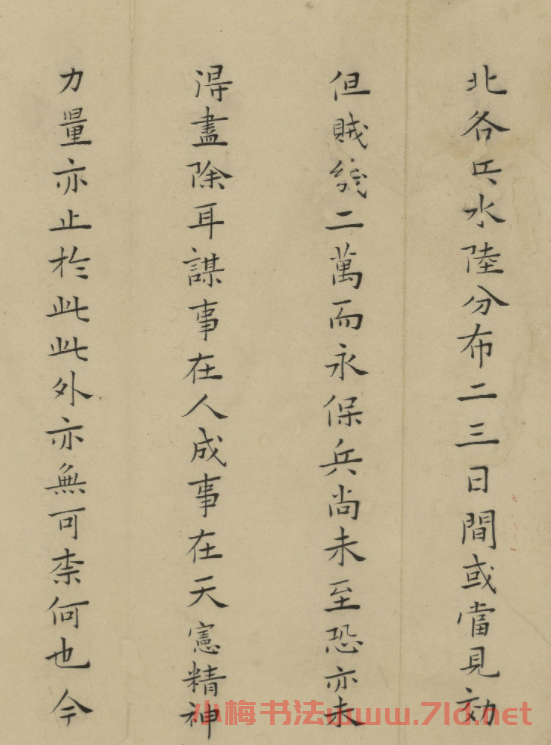 北各兵水陸分布二三日間或當見効
但賊二萬而永保兵尚未至恐亦未
得盡除耳謀事在人成事在天憲精神
力量亦止於此此外亦無可柰何也今
小梅书法www.71d.net